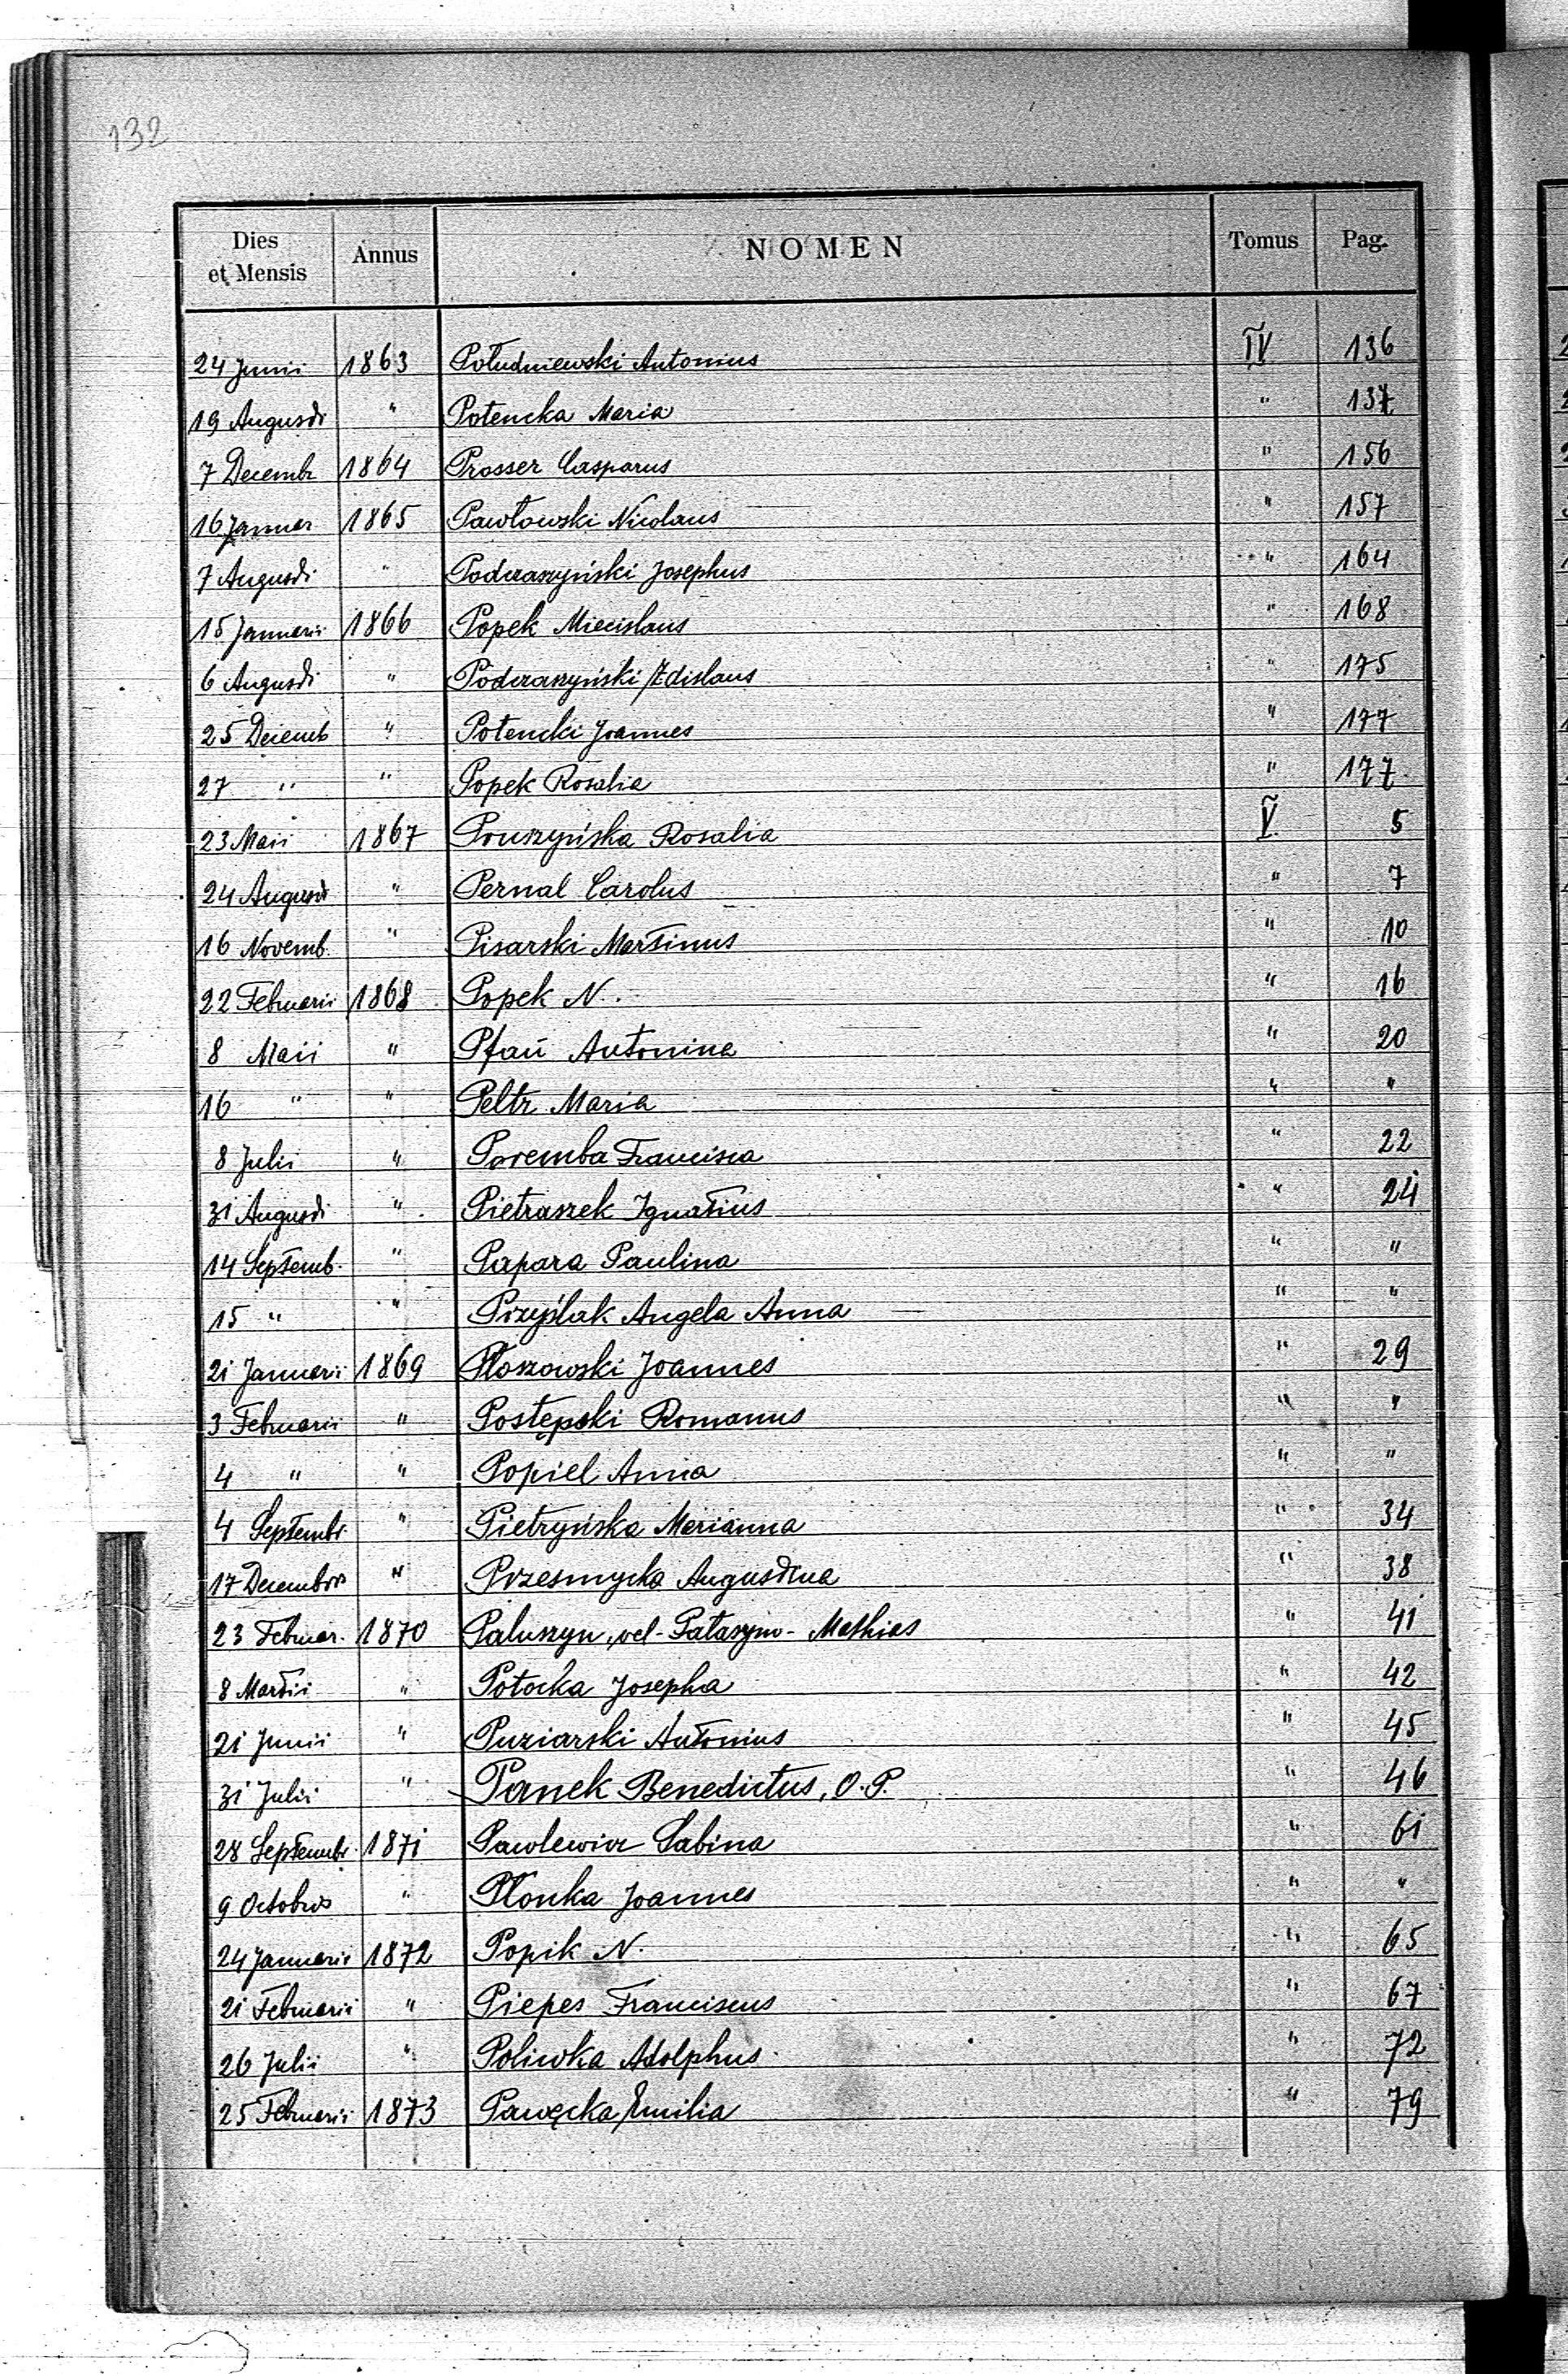 132
Dies et Mensis Annus NOMEN Tomus Pag.
24 Junii 1863 Południewski Antonius IV 136
19 Augusti " Potencka Maria " 137
7 Decembr 1864 Prosser Casparus " 156
16 Januar 1865 Pawłowski Nicolaus " 157
7 Augusti " Podczaszyński Josephus " 164
15 Januarii 1866 Popek Miecislaus " 168
6 Augusti " Podczaszyński Zdislaus " 175
25 Decemb " Potencki Joannes " 177
27 " " Popek Rosalia " 177
23 Maii 1867 Pruszyńska Rosalia V 5
24 Augusti " Pernal Carolus " 7
16 Novemb. " Pisarski Martinus " 10
22 Februarii 1868 Popek N. " 16
8 Maii " Pfaŭ Antonina " 20
16 " " Peltz Maria " "
8 Julii " Poremba Francisca " 22
31 Augusti " Pietraszek Ignatius " 24
14 Septemb. " Papara Paulina " "
15 " " Przyślak Angela Anna " "
21 Januarii 1869 Płoszowski Joannes " 29
3 Februarii " Postępski Romanus " "
4 " " Popiel Anna " "
4 Septembr " Pietryńska Marianna " 34
17 Decembris " Przesmycka Augustina " 38
23 Februar. 1870 Paluszyn, vel - Pałaszyn - Mathias " 41
8 Martii " Potocka Josepha " 42
21 Junii " Puziarski Antonius " 45
31 Julii " Panek Benedictus, O.P. " 46
28 Septembr. 1871 Pawlewicz Sabina " 61
9 Octobris " Płonka Joannes " "
24 Januarii 1872 Popik N. " 65
21 Februarii " Piepes Franciscus " 67
26 Julii " Poliwka Adolphus " 72
25 Februarii 1873 Pawęcka Emilia " 79